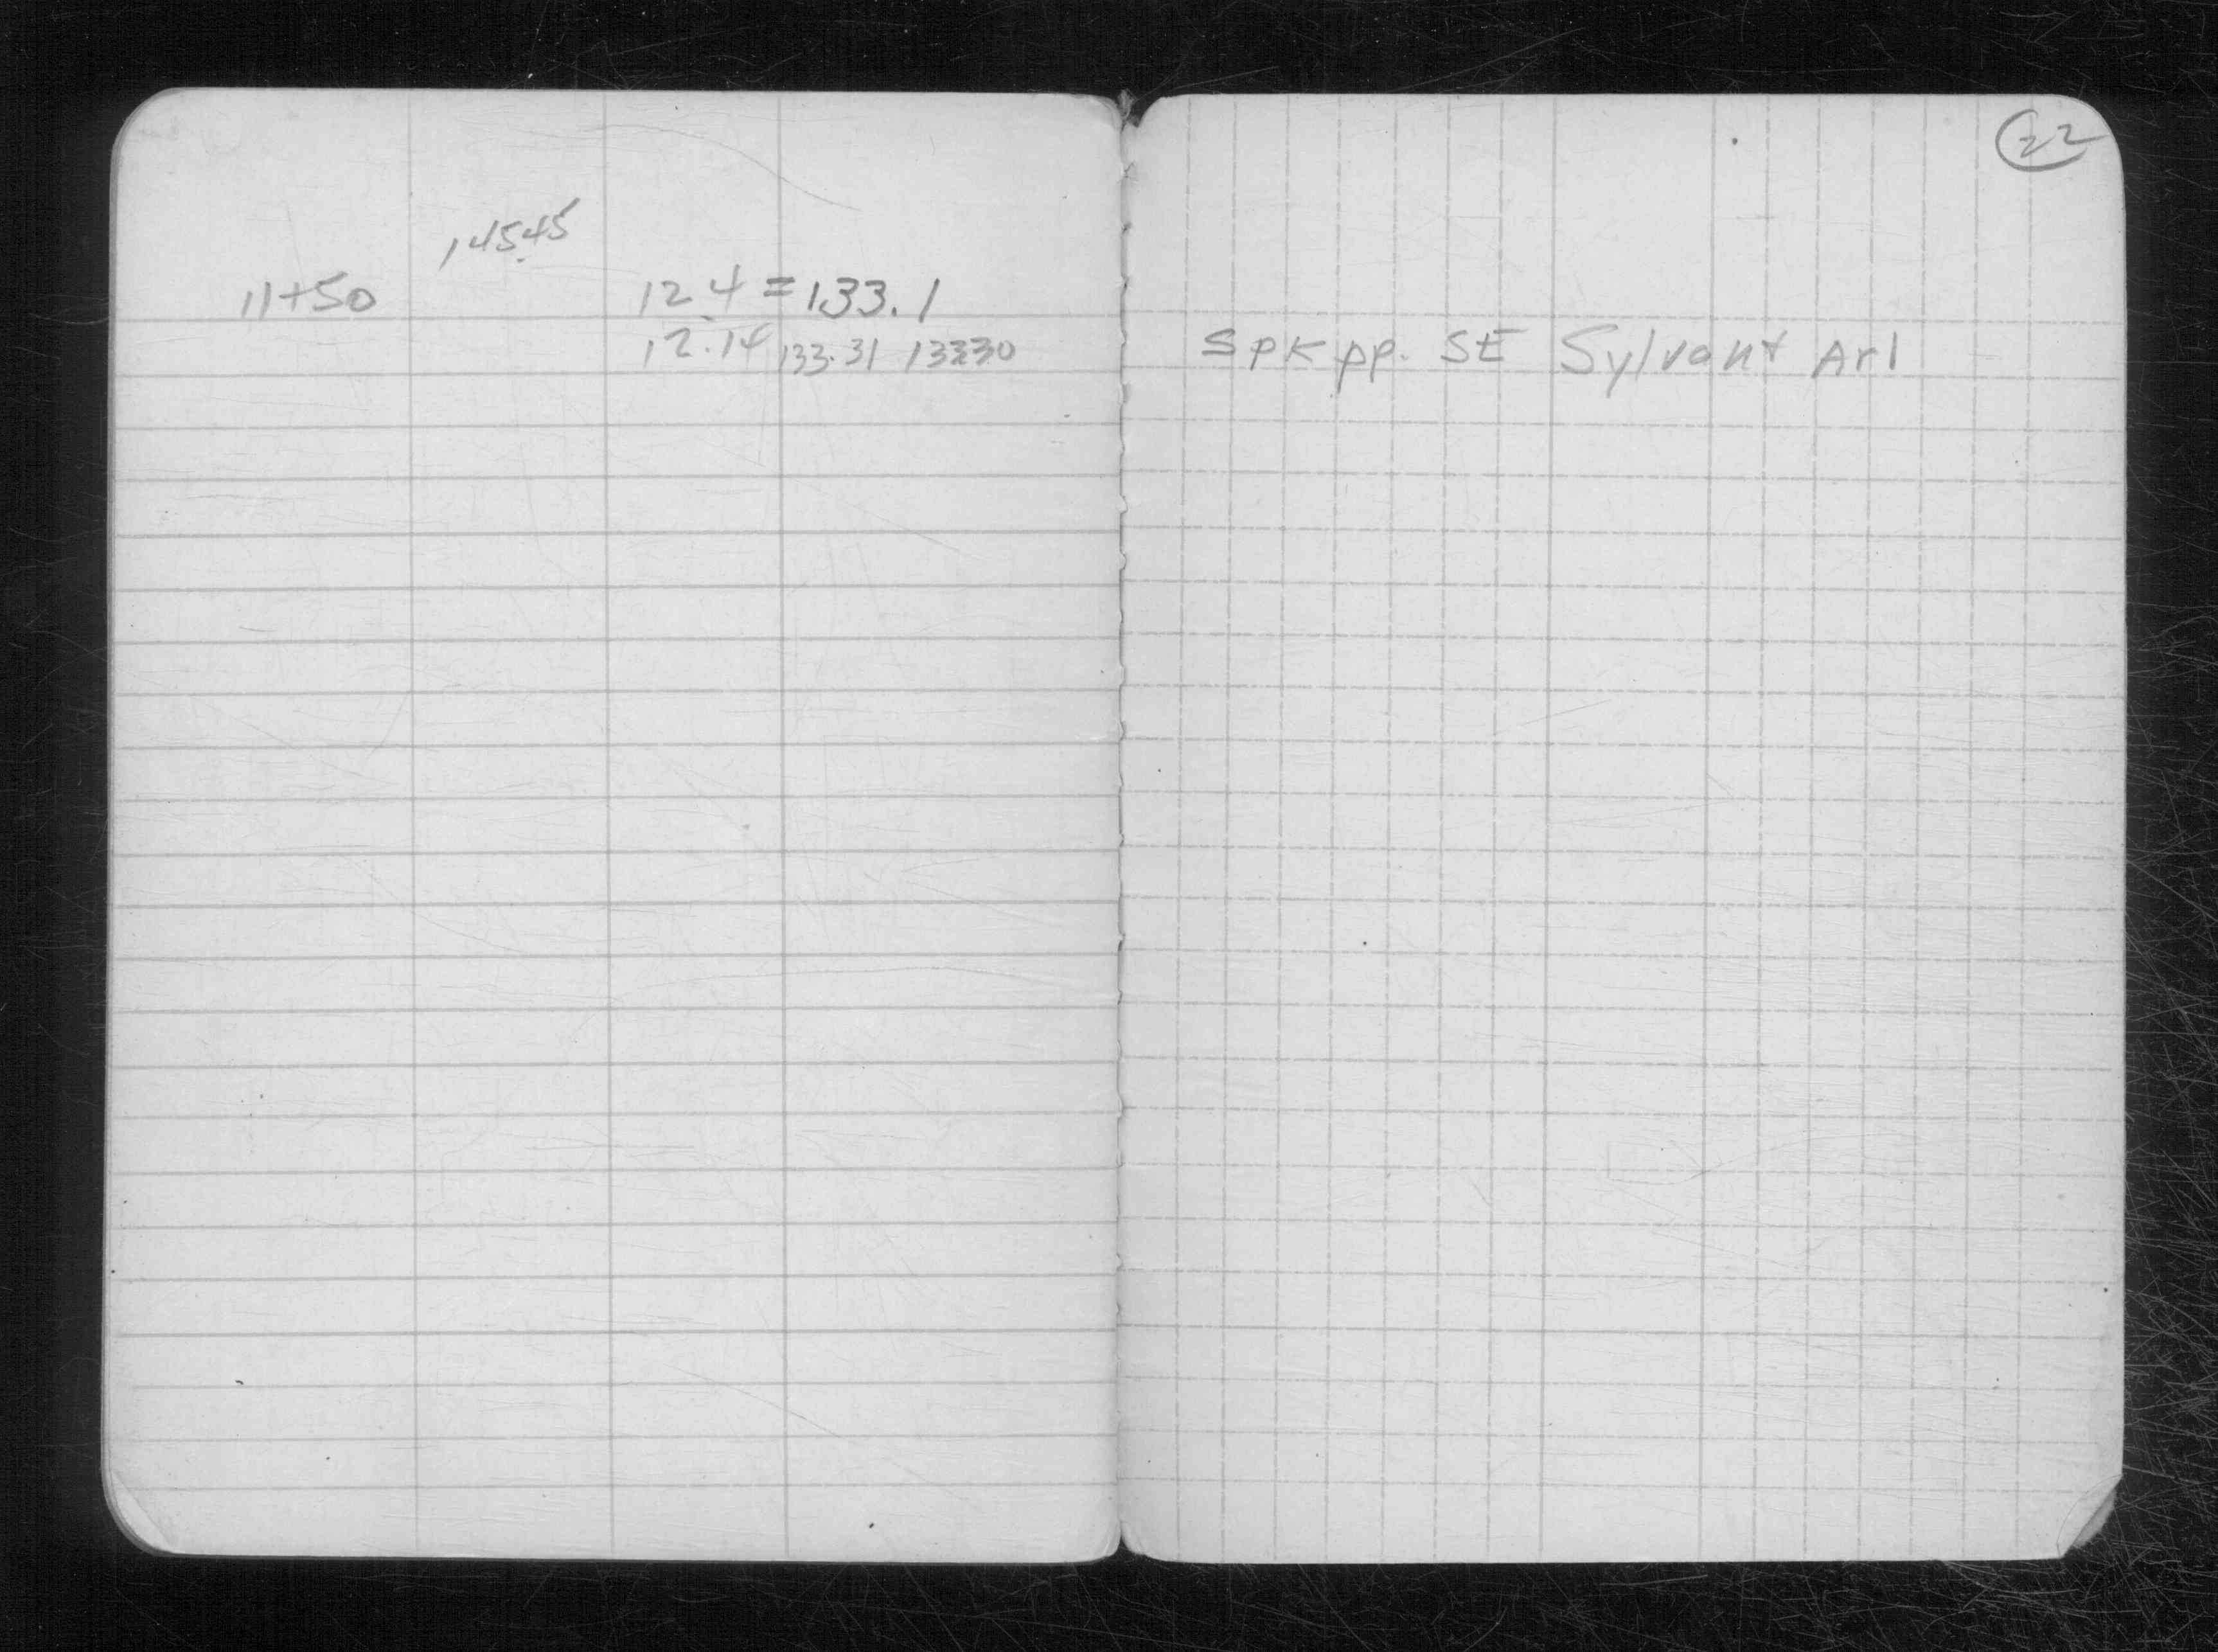 145.45
11+50 12.4 = 133.1
12.14 133.31 133.30
22
Spk pp. SE Sylvan + Arl